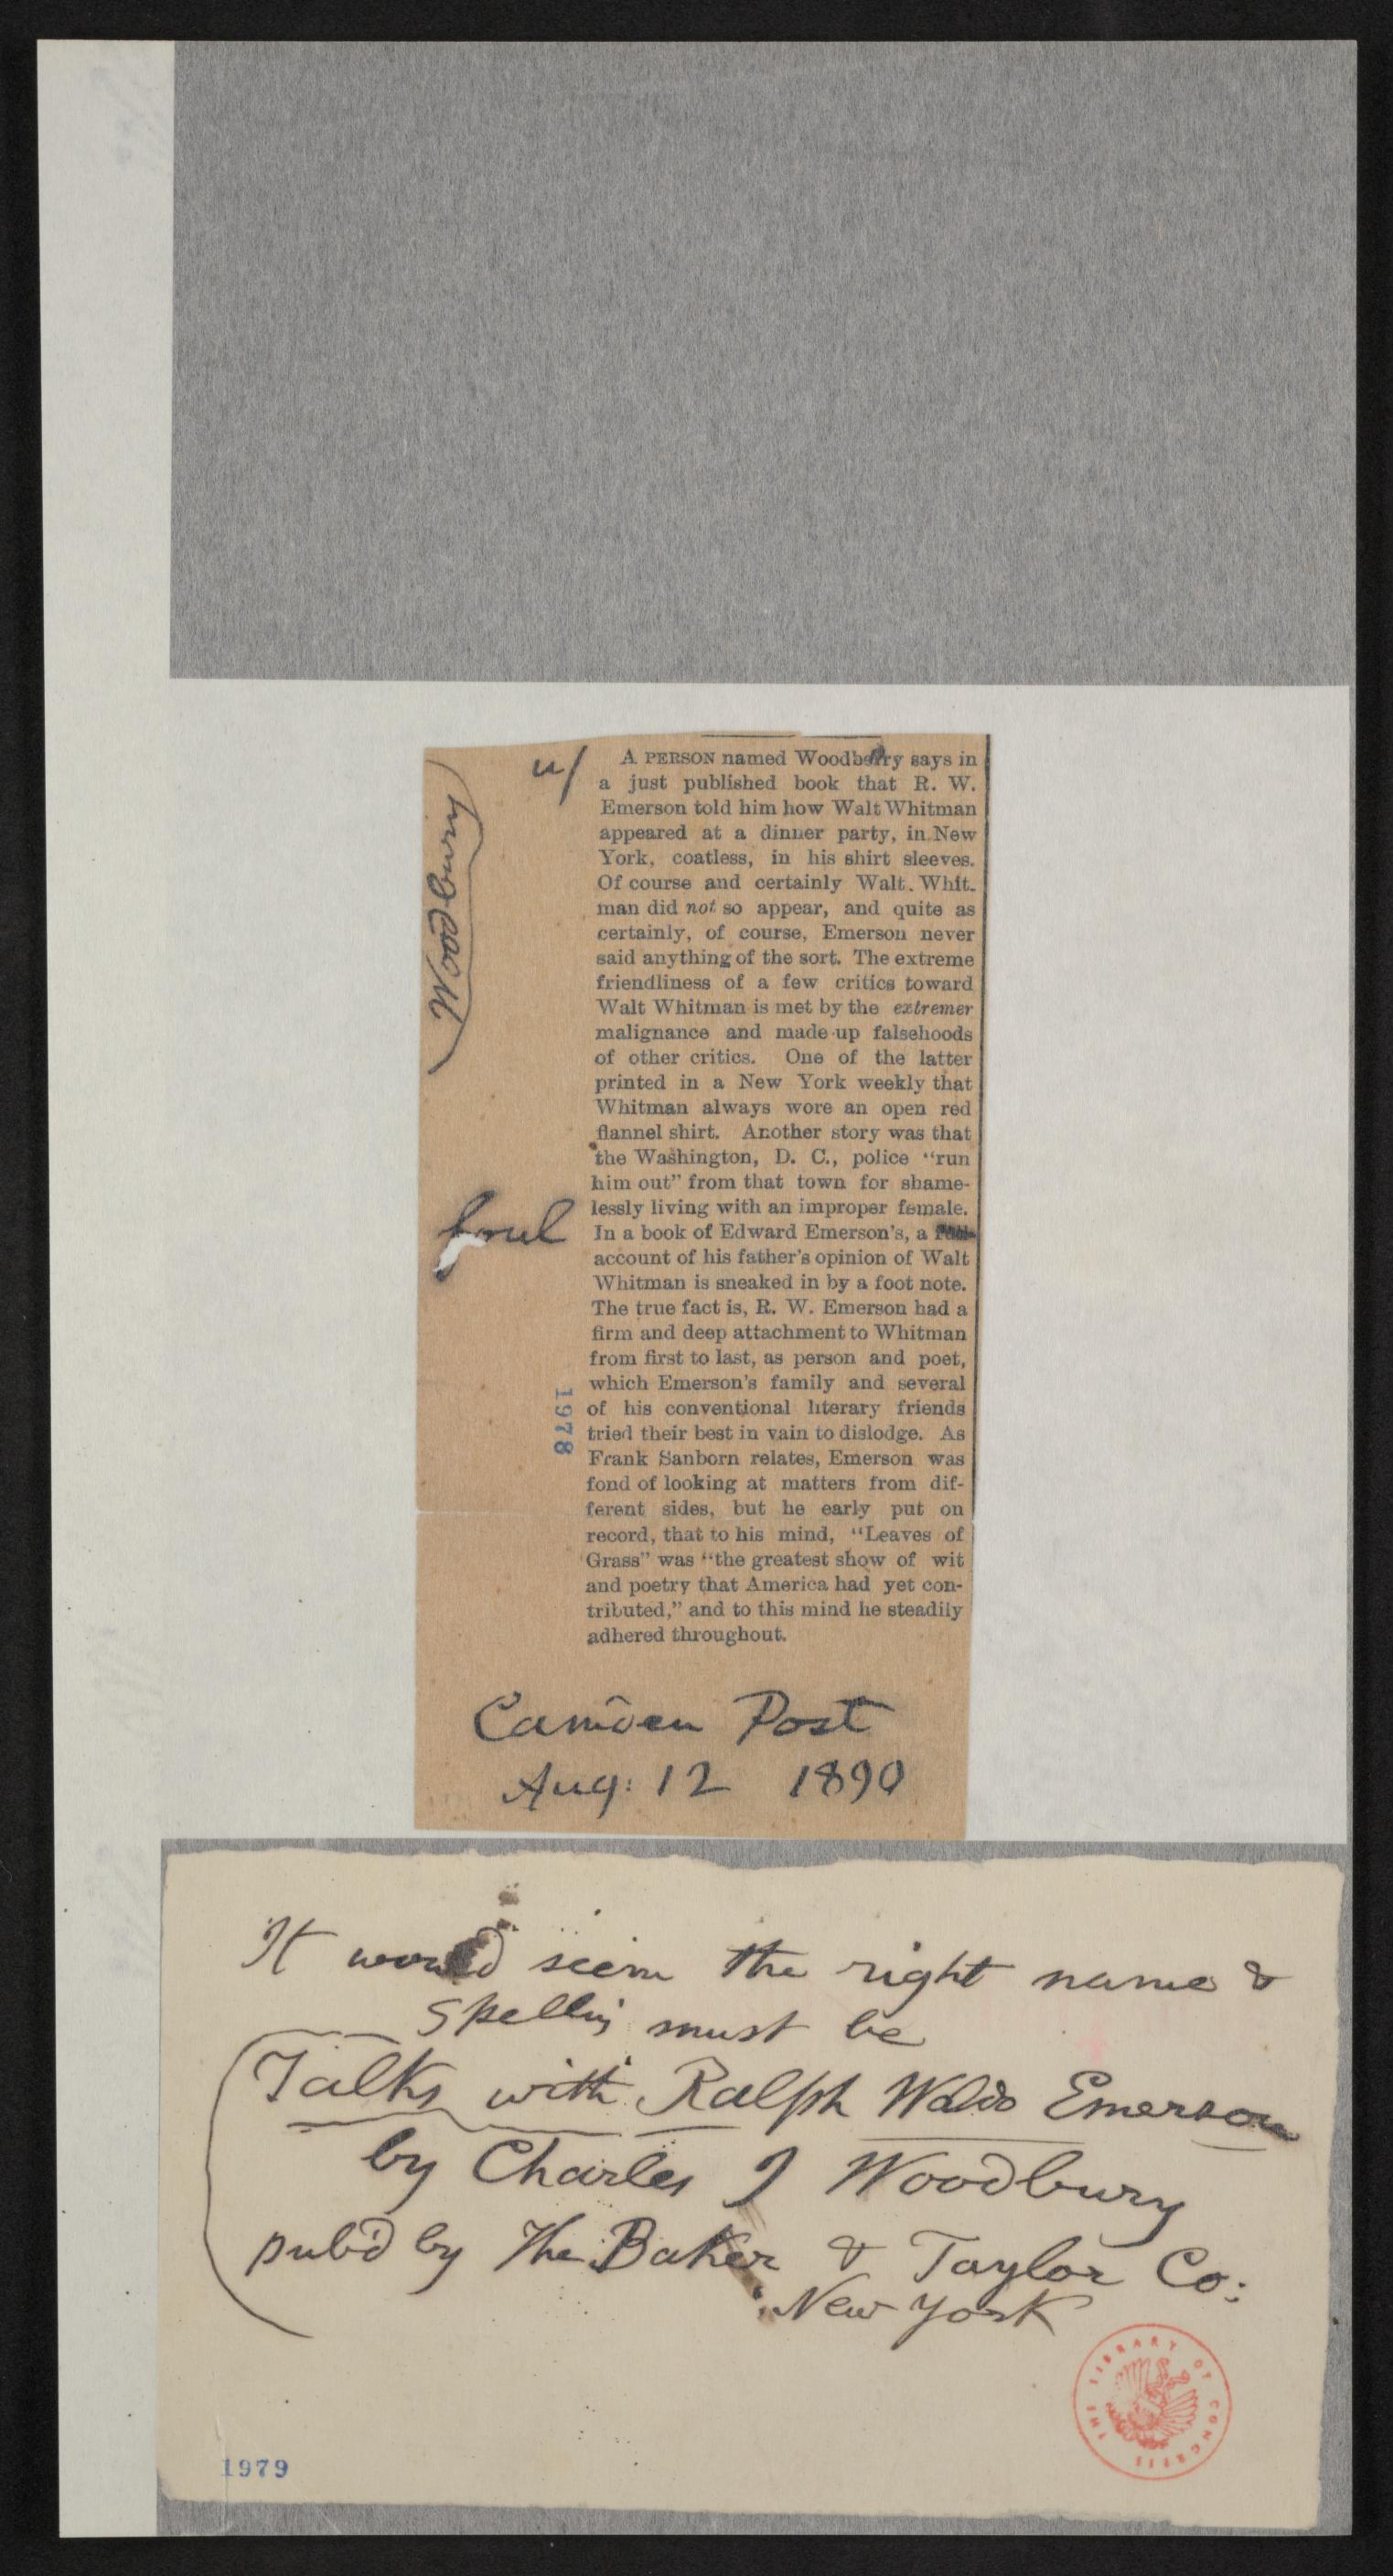 u/
Woodbury
A PERSON named Woodberry says in
a just published book that R. W.
Emerson told him how Walt Whitman
appeared at a dinner party, in New
York, coatless, in his shirt sleeves.
Of course and certainly Walt. Whit-
man did not so appear, and quite as
certainly, of course, Emerson never
said anything of the sort. The extreme
friendliness of a few critics toward
Walt Whitman is met by the extremer
malignance and made-up falsehoods
of other critics. One of the latter
printed in a New York weekly that
Whitman always wore an open red
flannel shirt. Another story was that
the Washington, D. C., police "run
him out" from that town for shame-
lessly living with an improper female.
foul
In a book of Edward Emerson's, a
account of his father's opinion of Walt
Whitman is sneaked in by a foot note.
The true fact is, R. W. Emerson had a
firm and deep attachment to Whitman
from first to last, as person and poet,
which Emerson's family and several
of his conventional literary friends
tried their best in vain to dislodge. As
Frank Sanborn relates, Emerson was
fond of looking at matters from dif-
ferent sides, but he early put on
record, that to his mind, "Leaves of
Grass" was "the greatest show of wit
and poetry that America had yet con-
tributed," and to this mind he steadily
adhered throughout.
1978
Camden Post
Aug: 12 1890
It would seem the right name &
spelling must be
Talks with Ralph Waldo Emerson
by Charles J Woodbury
pub'd by The Baker & Taylor Co:
New York
THE LIBRARY OF CONGRESS
1979